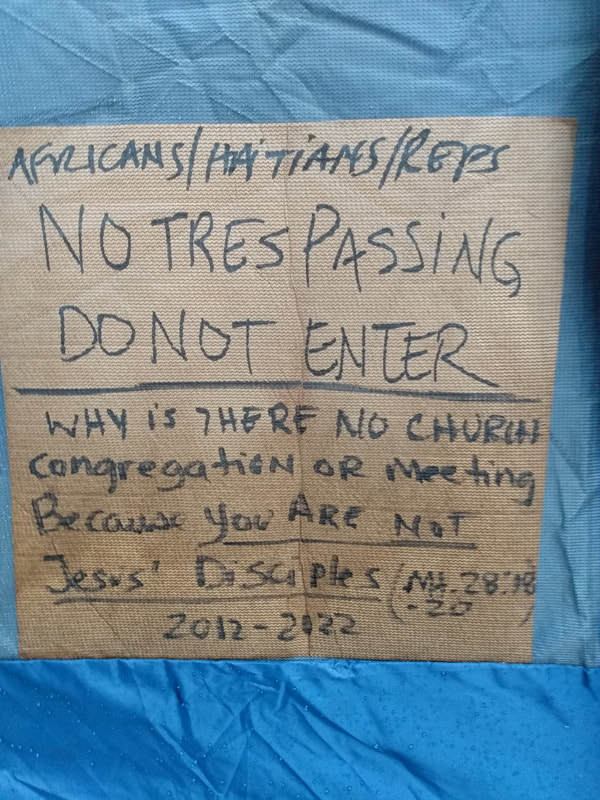 AFRICANS/HAiTiANS/REPS
NO TRESPASSiNG
DO NOT ENTER
WHY iS THERE NO CHURCH
congregatiON OR Meeting
Because you ARE NOT
Jesus' DiSCiples (Mt. 28:18
-20)
2012-2022